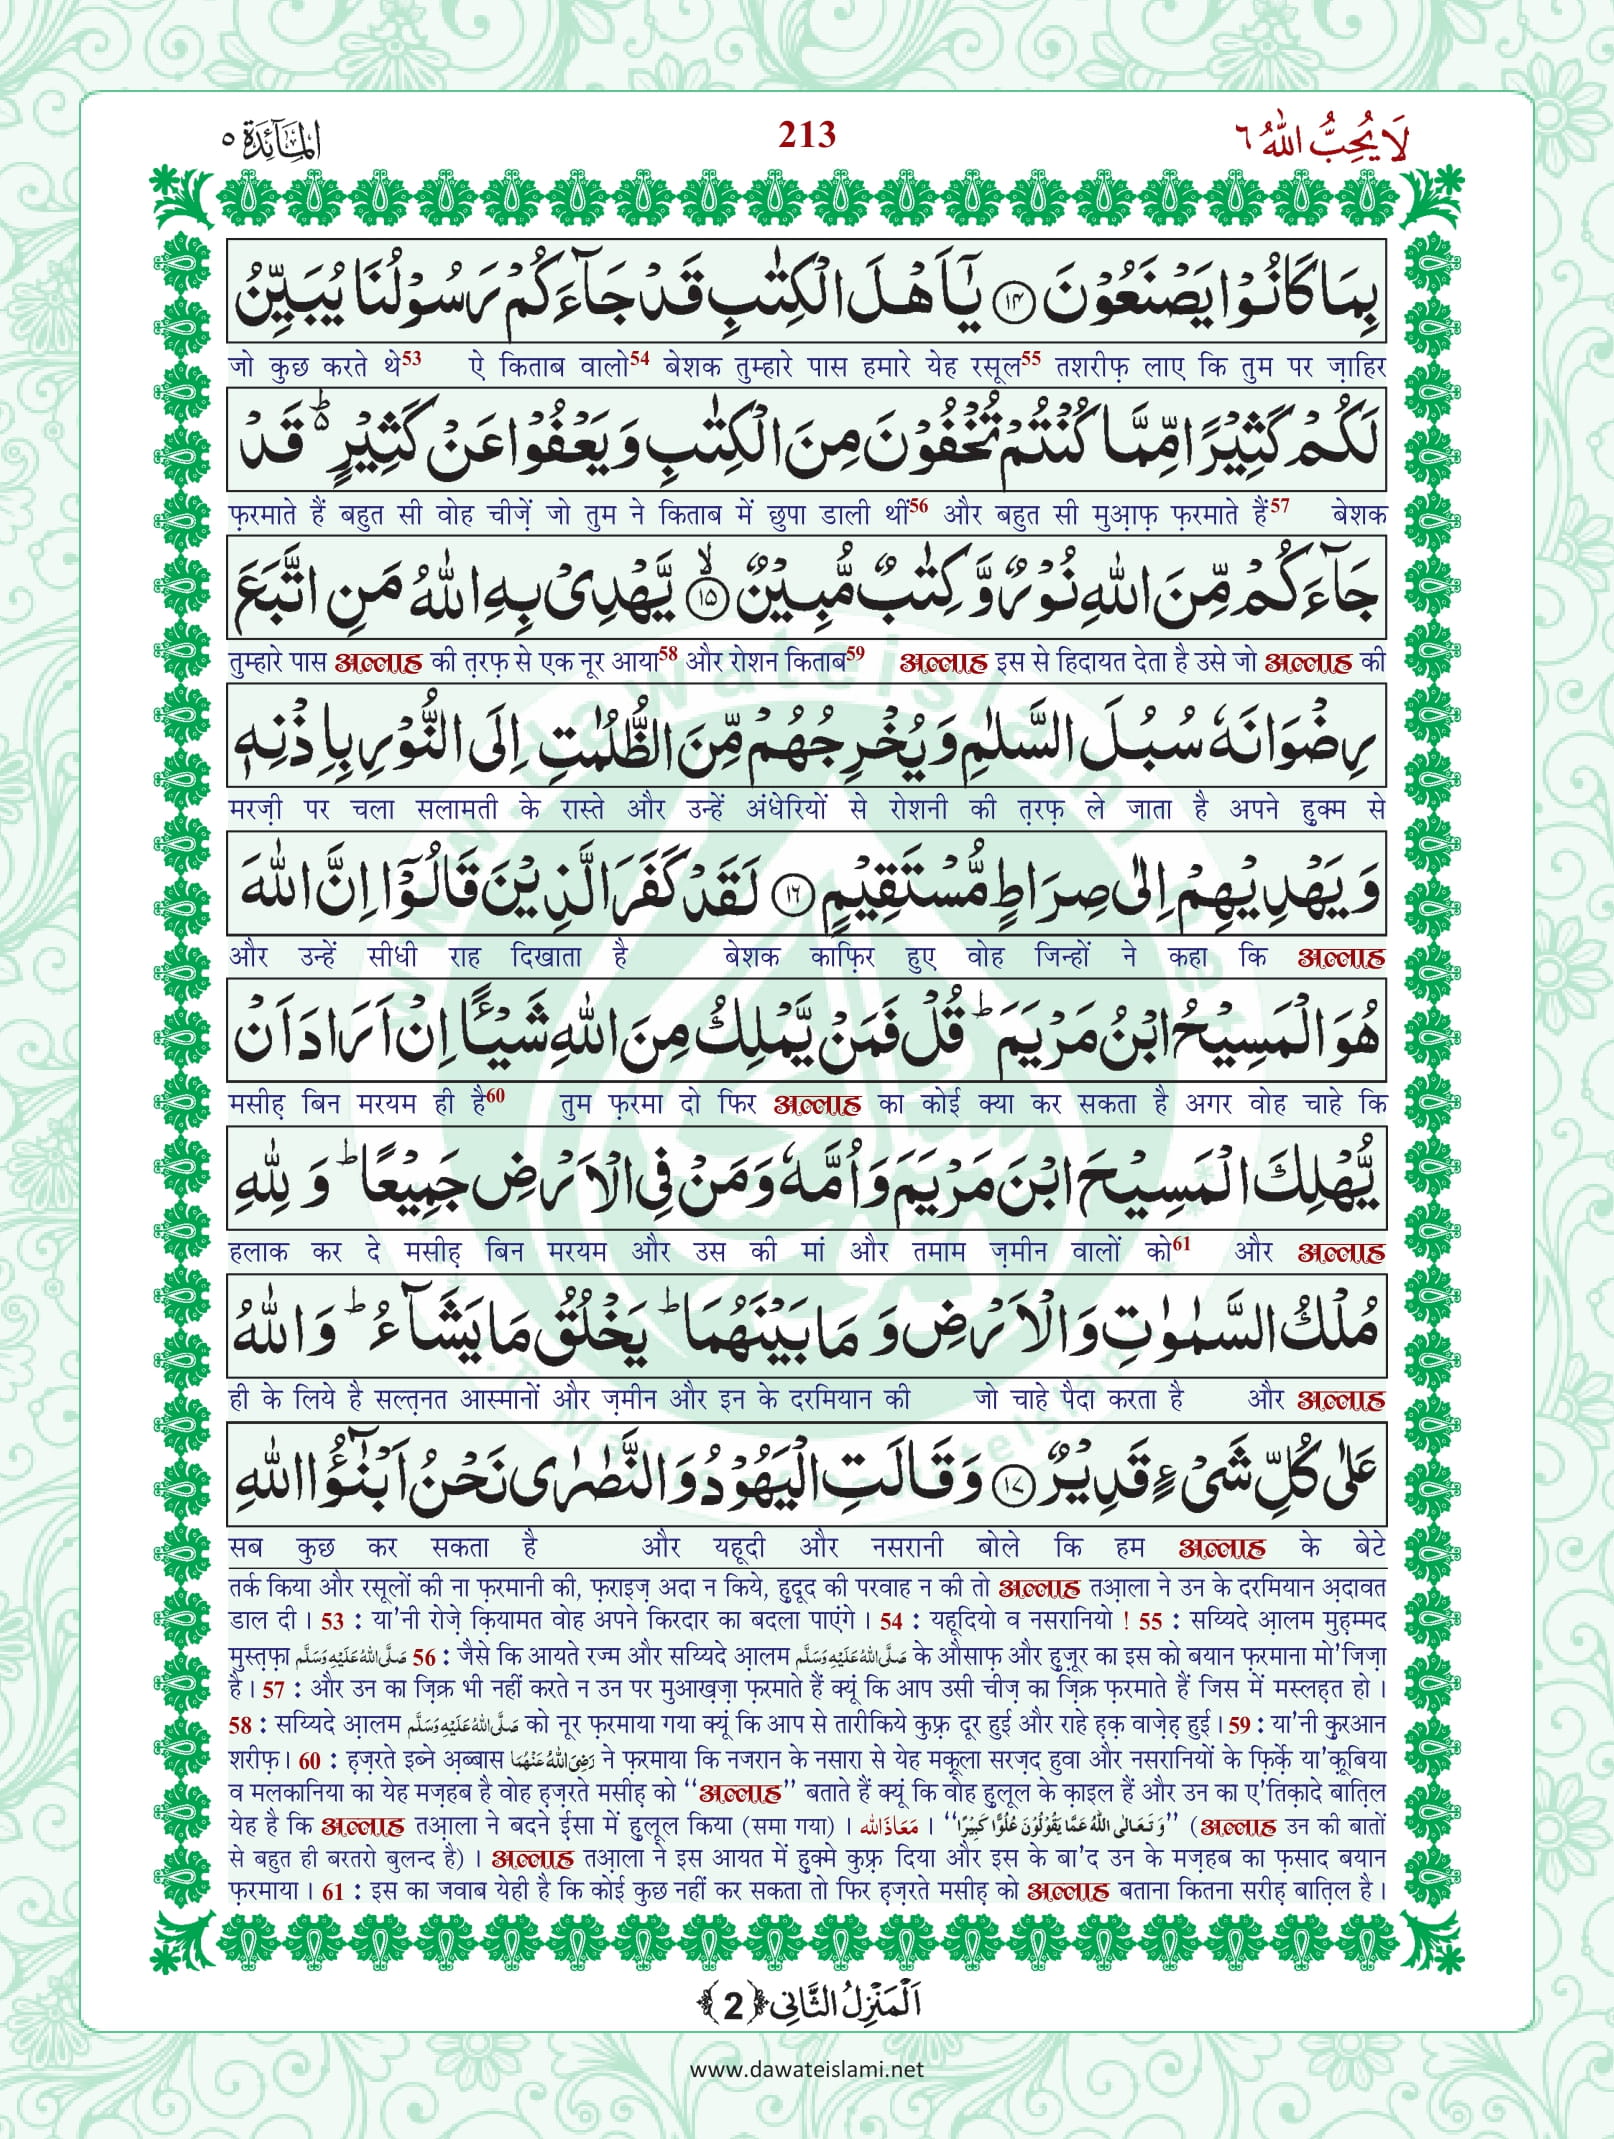 لَا یُحِبُّ اللّٰهُ ٦
213
اَلْمَآئِدَة ٥
بِمَا كَانُوْا یَصْنَعُوْنَ ﴿۱۴﴾ یٰۤاَهْلَ الْكِتٰبِ قَدْ جَآءَكُمْ رَسُوْلُنَا یُبَیِّنُ
जो कुछ करते थे53 ऐ किताब वालो54 बेशक तुम्हारे पास हमारे येह रसूल55 तशरीफ़ लाए कि तुम पर ज़ाहिर
لَكُمْ كَثِیْرًا مِّمَّا كُنْتُمْ تُخْفُوْنَ مِنَ الْكِتٰبِ وَ یَعْفُوْا عَنْ كَثِیْرٍ ۬ؕ قَدْ
फ़रमाते हैं बहुत सी वोह चीज़ें जो तुम ने किताब में छुपा डाली थीं56 और बहुत सी मुआ़फ़ फ़रमाते हैं57 बेशक
جَآءَكُمْ مِّنَ اللّٰهِ نُوْرٌ وَّ كِتٰبٌ مُّبِیْنٌ ﴿ۙ۱۵﴾ یَّهْدِیْ بِهِ اللّٰهُ مَنِ اتَّبَعَ
तुम्हारे पास अल्लाह की त़रफ़ से एक नूर आया58 और रोशन किताब59 अल्लाह इस से हिदायत देता है उसे जो अल्लाह की
رِضْوَانَهٗ سُبُلَ السَّلٰمِ وَ یُخْرِجُهُمْ مِّنَ الظُّلُمٰتِ اِلَی النُّوْرِ بِاِذْنِهٖ
मरज़ी पर चला सलामती के रास्ते और उन्हें अंधेरियों से रोशनी की त़रफ़ ले जाता है अपने हु़क्म से
وَ یَهْدِیْهِمْ اِلٰی صِرَاطٍ مُّسْتَقِیْمٍ ﴿۱۶﴾ لَقَدْ كَفَرَ الَّذِیْنَ قَالُوْۤا اِنَّ اللّٰهَ
और उन्हें सीधी राह दिखाता है बेशक काफ़िर हुए वोह जिन्हों ने कहा कि अल्लाह
هُوَ الْمَسِیْحُ ابْنُ مَرْیَمَ ؕ قُلْ فَمَنْ یَّمْلِكُ مِنَ اللّٰهِ شَیْـًٔا اِنْ اَرَادَ اَنْ
मसीह़ बिन मरयम ही है60 तुम फ़रमा दो फिर अल्लाह का कोई क्या कर सकता है अगर वोह चाहे कि
یُّهْلِكَ الْمَسِیْحَ ابْنَ مَرْیَمَ وَ اُمَّهٗ وَ مَنْ فِی الْاَرْضِ جَمِیْعًا ؕ وَ لِلّٰهِ
हलाक कर दे मसीह़ बिन मरयम और उस की मां और तमाम ज़मीन वालों को61 और अल्लाह
مُلْكُ السَّمٰوٰتِ وَ الْاَرْضِ وَ مَا بَیْنَهُمَا ؕ یَخْلُقُ مَا یَشَآءُ ؕ وَ اللّٰهُ
ही के लिये है सल्त़नत आस्मानों और ज़मीन और इन के दरमियान की जो चाहे पैदा करता है और अल्लाह
عَلٰی كُلِّ شَیْءٍ قَدِیْرٌ ﴿۱۷﴾ وَ قَالَتِ الْیَهُوْدُ وَ النَّصٰرٰی نَحْنُ اَبْنٰٓؤُا اللّٰهِ
सब कुछ कर सकता है और यहूदी और नसरानी बोले कि हम अल्लाह के बेटे
तर्क किया और रसूलों की ना फ़रमानी की, फ़राइज़ अदा न किये, हु़दूद की परवाह न की तो अल्लाह तआ़ला ने उन के दरमियान अ़दावत
डाल दी । 53 : या'नी रोज़े क़ियामत वोह अपने किरदार का बदला पाएंगे । 54 : यहूदियो व नसरानियो ! 55 : सय्यिदे आ़लम मुह़म्मद
मुस्त़फ़ा صَلَّی اللّٰهُ عَلَیْهِ وَسَلَّم 56 : जैसे कि आयते रज्म और सय्यिदे आ़लम صَلَّی اللّٰهُ عَلَیْهِ وَسَلَّم के औसाफ़ और हु़ज़ूर का इस को बयान फ़रमाना मो'जिज़ा
है । 57 : और उन का ज़िक्र भी नहीं करते न उन पर मुआख़ज़ा फ़रमाते हैं क्यूं कि आप उसी चीज़ का ज़िक्र फ़रमाते हैं जिस में मस्लह़त हो ।
58 : सय्यिदे आ़लम صَلَّی اللّٰهُ عَلَیْهِ وَسَلَّم को नूर फ़रमाया गया क्यूं कि आप से तारीकिये कुफ़्र दूर हुई और राहे ह़क़ वाज़ेह़ हुई । 59 : या'नी कु़रआन
शरीफ़ । 60 : ह़ज़रते इब्ने अ़ब्बास رَضِیَ اللّٰهُ عَنْهُمَا ने फ़रमाया कि नजरान के नसारा से येह मक़ूला सरज़द हुवा और नसरानियों के फ़िर्क़े या'क़ूबिया
व मलकानिया का येह मज़हब है वोह ह़ज़रते मसीह़ को ''अल्लाह'' बताते हैं क्यूं कि वोह हु़लूल के क़ाइल हैं और उन का ए'तिक़ादे बात़िल
येह है कि अल्लाह तआ़ला ने बदने ईसा में हु़लूल किया (समा गया) । مَعَاذَ اللّٰه । ''وَ تَعَالٰی اللّٰهُ عَمَّا یَقُوْلُوْنَ عُلُوًّا كَبِیْرًا'' (अल्लाह उन की बातों
से बहुत ही बरतरो बुलन्द है) । अल्लाह तआ़ला ने इस आयत में हु़क्मे कुफ़्र दिया और इस के बा'द उन के मज़हब का फ़साद बयान
फ़रमाया । 61 : इस का जवाब येही है कि कोई कुछ नहीं कर सकता तो फिर ह़ज़रते मसीह़ को अल्लाह बताना कितना सरीह़ बात़िल है ।
اَلْمَنْزِلُ الثَّانِی ﴿2﴾
www.dawateislami.net